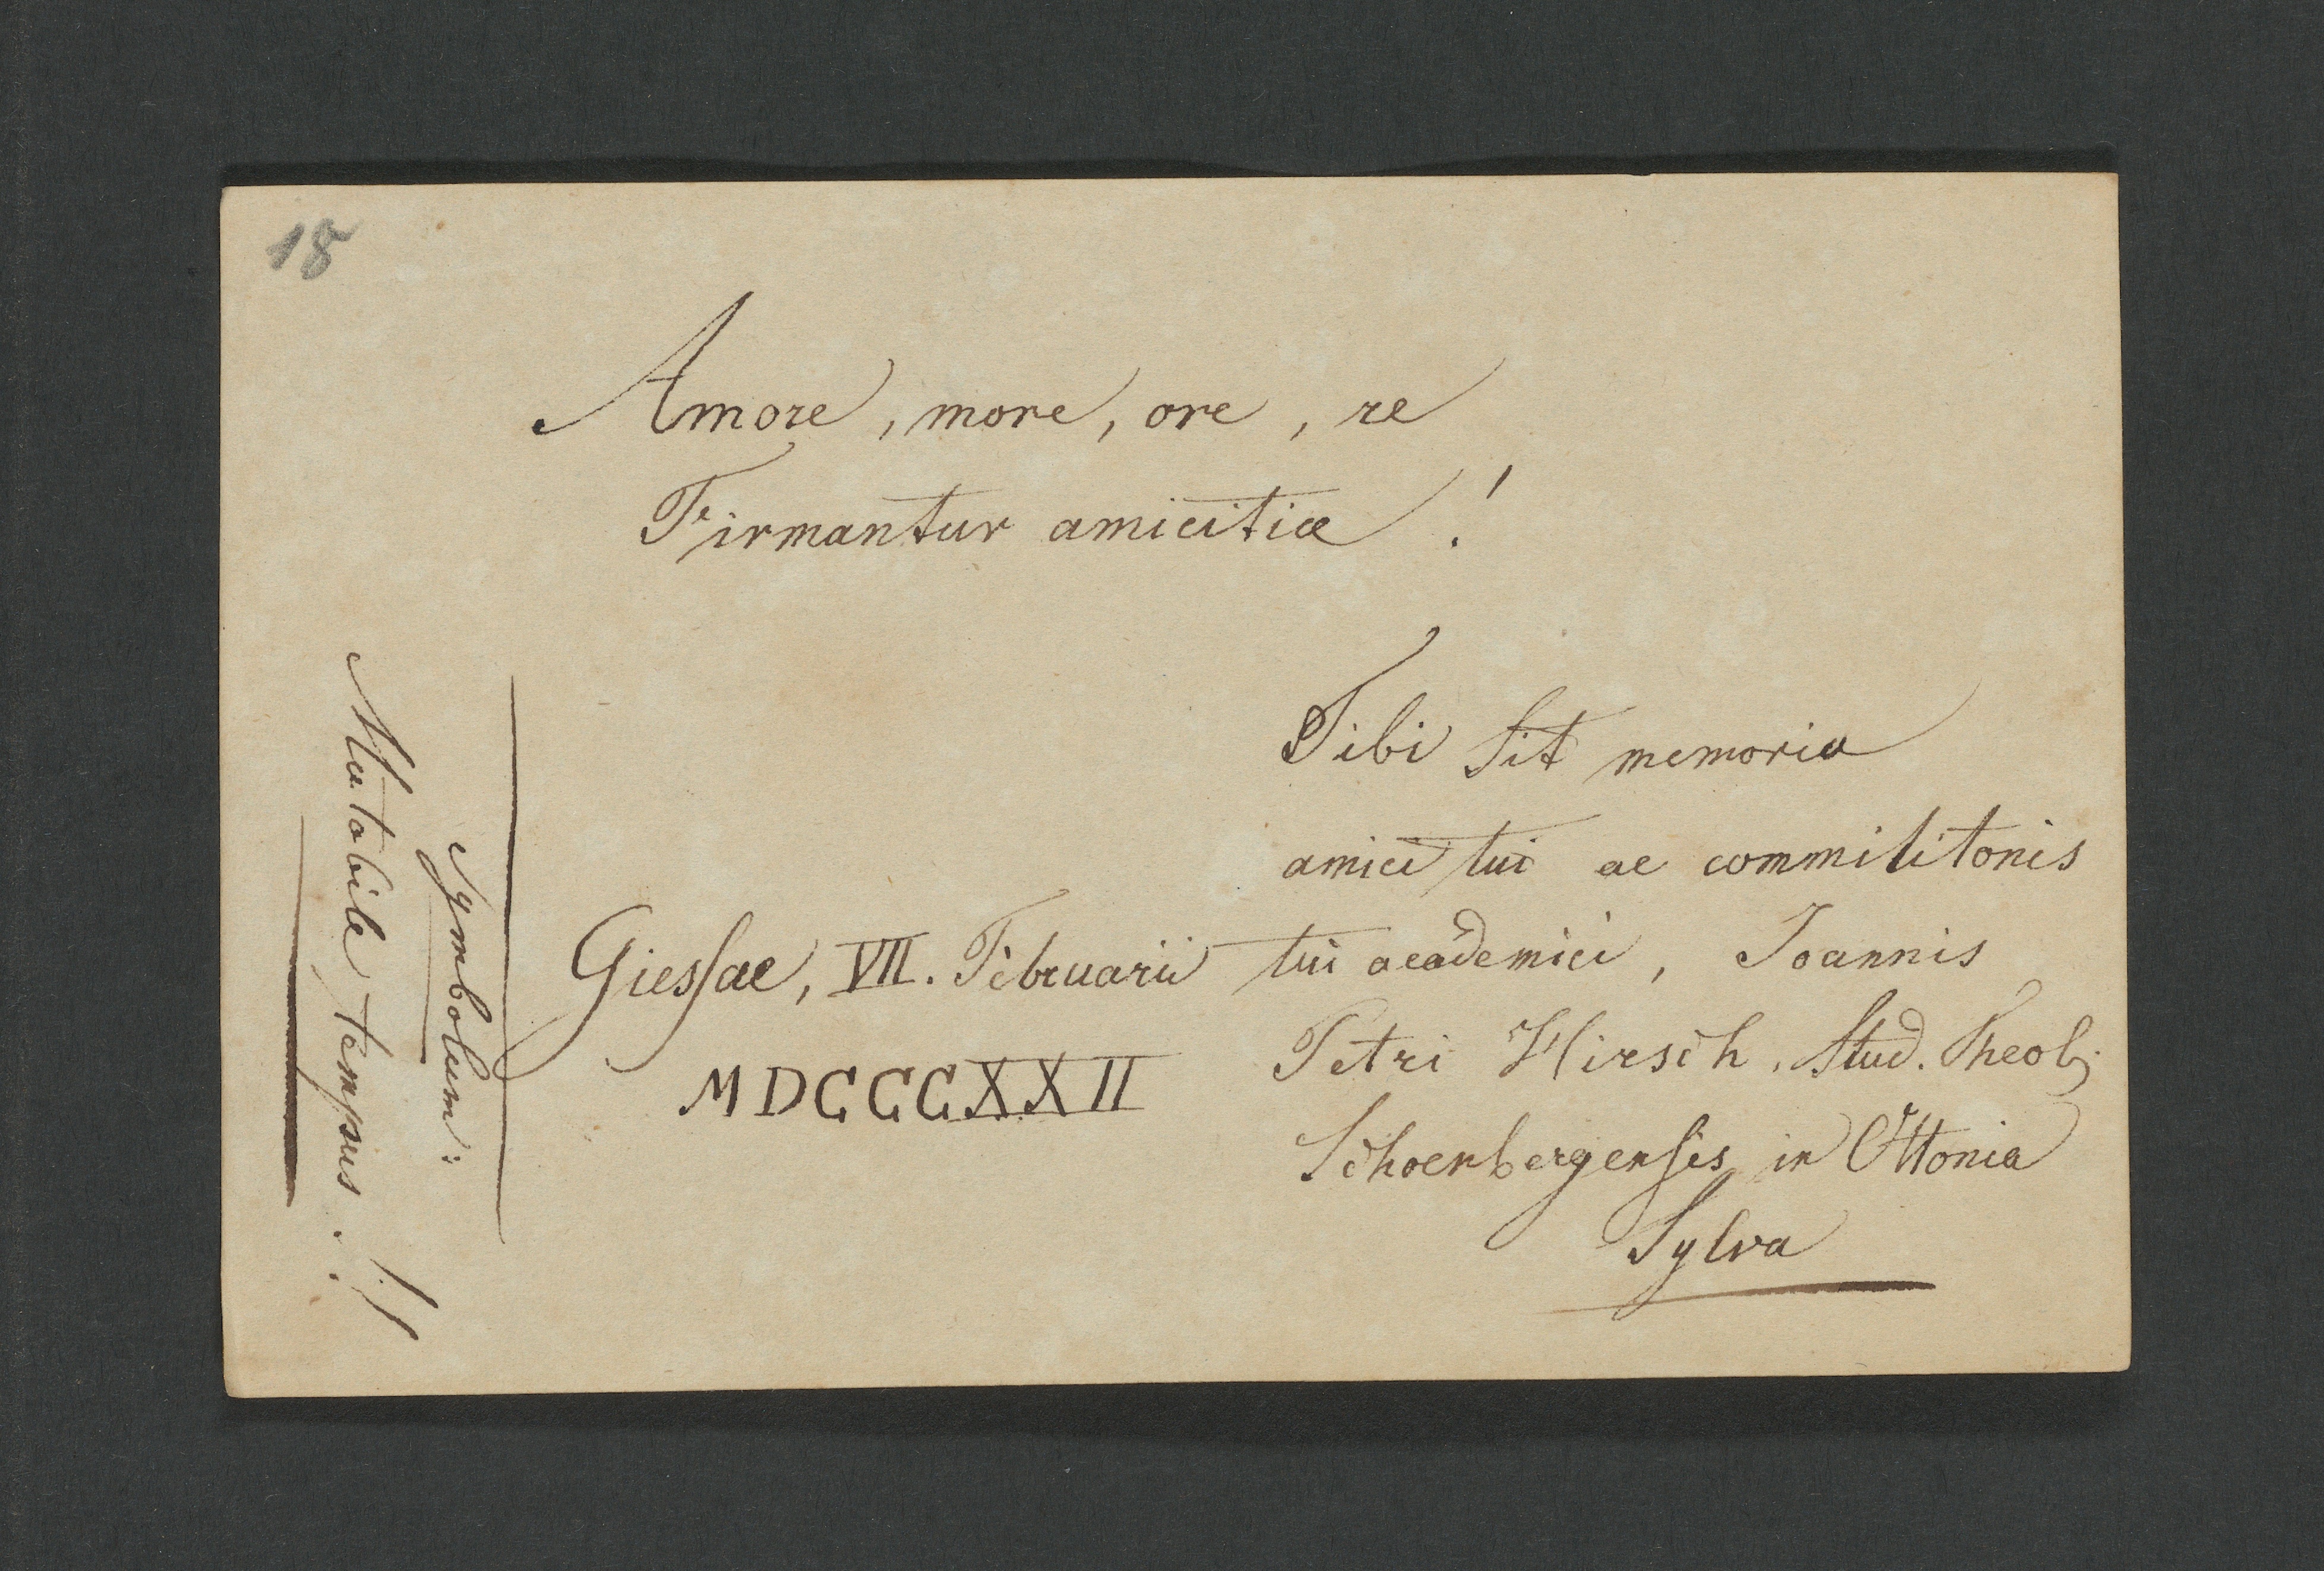 18
Amore, more, ore, re
Firmantur amicitiæ!
Tibi sit memoria
amici tui ac commilitonis
tui academici, Joannis
Petri Hirsch, Stud. Theol;
Schoenbergensis in Ottonia
Sylva
Giessae, VII. Februarii
MDCCCXXII
Symbolum:
Mutabile tempus!